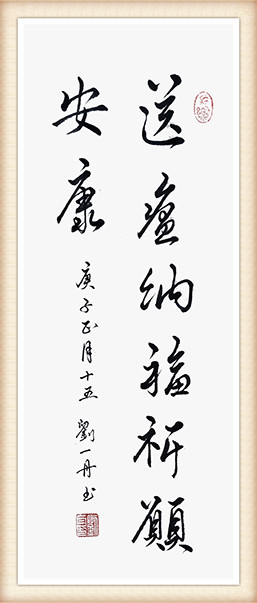 送瘟纳福祈願
安康
庚子正月十五 劉一丹书